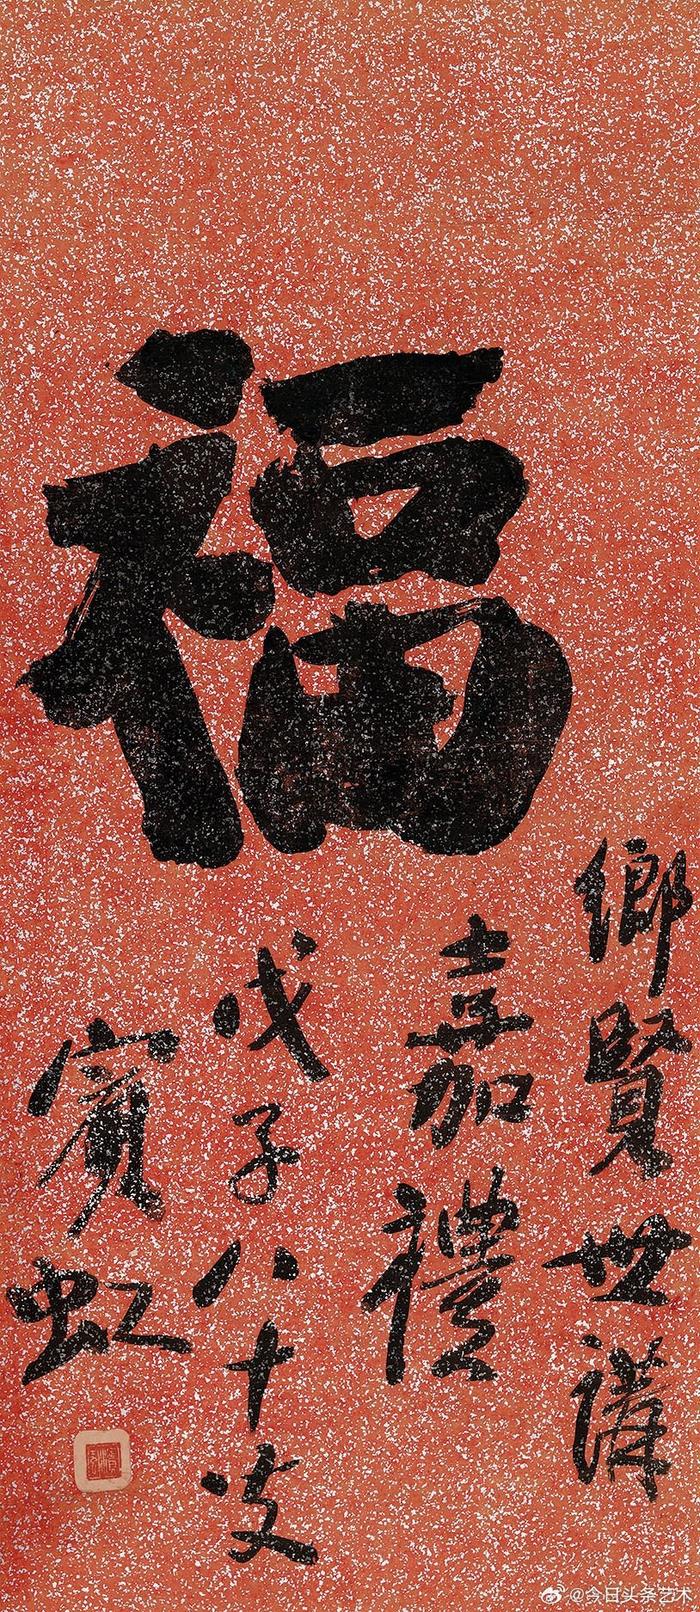 福
鄉賢世講
嘉禮
戊子八十
賓虹
@今日头条艺术